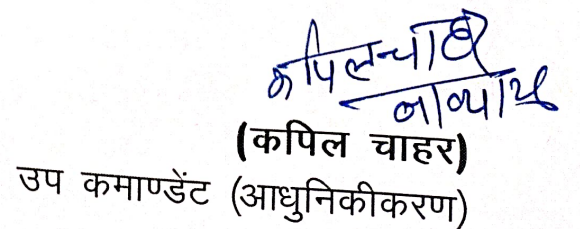 कपिल चाहर
(कपिल चाहर)
उप कमाण्डेंट (आधुनिकीकरण)